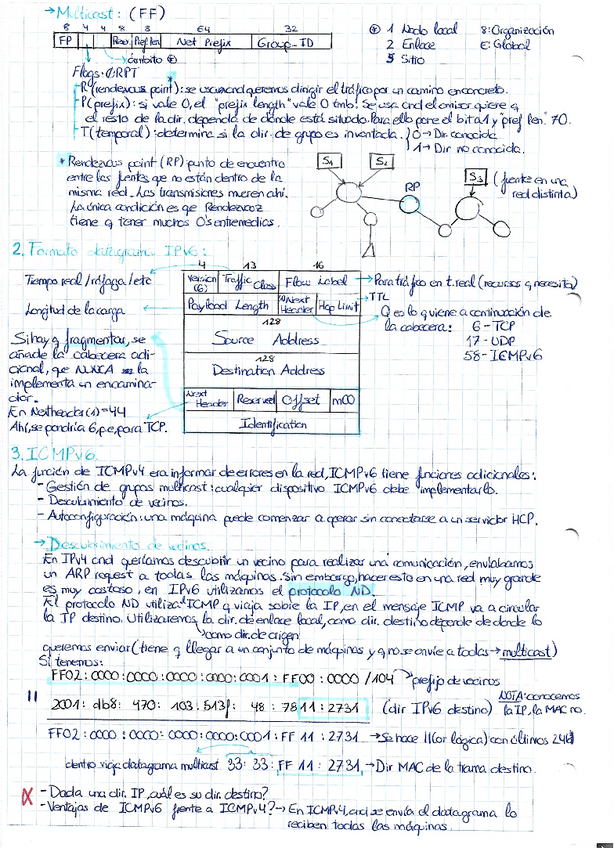 → Multicast: (FF)
8 4 4 8 8 64 32
FP Reser Pref len Net Prefix Group-ID
ámbito
1 Nodo local 8: Organización
2 Enlace E: Global
5 Sitio
Flags: 0RPT
-R(rendezvous point): se usa cuando queremos dirigir el tráfico por un camino en concreto.
-P(prefix): si vale 0, el "prefix length" vale 0 tmb. Se usa cnd el emisor quiere q
el resto de la dir. dependa de dónde está situado. Para ello pone el bit a 1 y "pref len" ≠0.
-T(temporal): determina si la dir. de grupo es inventada. 0 → Dir conocida
1 → Dir no conocida.
* Rendezvous point (RP) punto de encuentro
entre las fuentes que no están dentro de la
misma red. Las transmisiones mueren ahí.
La única condición es que Rendezvooz
tiene q tener muchos 0's entremedias.
S1 S2 S3 (fuente en una
red distinta)
RP
2. Formato datagrama IPv6:
4 13 16
Tiempo real / ráfaga / etc
Version (6) Traffic Class Flow Label
→ Para tráfico en t.real (recursos q necesita)
Longitud de la carga
Payload Length Next Header Hop Limit
→ TTL
Q es lo q viene a continuación de
la cabecera: 6 - TCP
17 - UDP
58 - ICMPv6
128
Source Address
128
Destination Address
Next Header Reserved Offset m00
Identification
Si hay q fragmentar, se
añade la cabecera adi-
cional, que NUNCA la
implementa un encamina-
dor.
En Nextheader(1)=44
Ahí, se pondría 6, p.e, para TCP.
3. ICMPv6.
La función de ICMPv4 era informar de errores en la red, ICMPv6 tiene funciones adicionales:
- Gestión de grupos multicast: cualquier dispositivo ICMPv6 debe implementarlo.
- Descubrimiento de vecinos.
- Autoconfiguración: una máquina puede comenzar a operar sin conectarse a un servidor HCP.
→ Descubrimiento de vecinos.
En IPv4 cnd queríamos descubrir un vecino para realizar una comunicación, enviábamos
un ARP request a todas las máquinas. Sin embargo, hacer esto en una red muy grande
es muy costoso, en IPv6 utilizamos el protocolo ND.
El protocolo ND utiliza ICMP q viaja sobre la IP, en el mensaje ICMP va a circular
la IP destino. Utilizaremos la dir. de enlace local, como dir. destino depende de donde lo
como dir. de origen
queremos enviar (tiene q llegar a un conjunto de máquinas y q no se envíe a todas → multicast)
Si tenemos:
FF02:0000:0000:0000:0000:0001:FF00:0000/104 → prefijo de vecinos
|| 2001:db8:470:103:513f:48:7811:2731 (dir IPv6 destino) NOTA: conocemos
la IP, la MAC no.
FF02:0000:0000:0000:0000:0001:FF11:2731 → Se hace || (or lógica) con últimos 24b
dentro viaja datagrama multicast 33:33:FF11:2731 → Dir MAC de la trama destino.
- Dada una dir. IP, cuál es su dir. destino?
- Ventajas de ICMPv6 frente a ICMPv4? → En ICMPv4, cnd se envía el datagrama lo
reciben todas las máquinas.